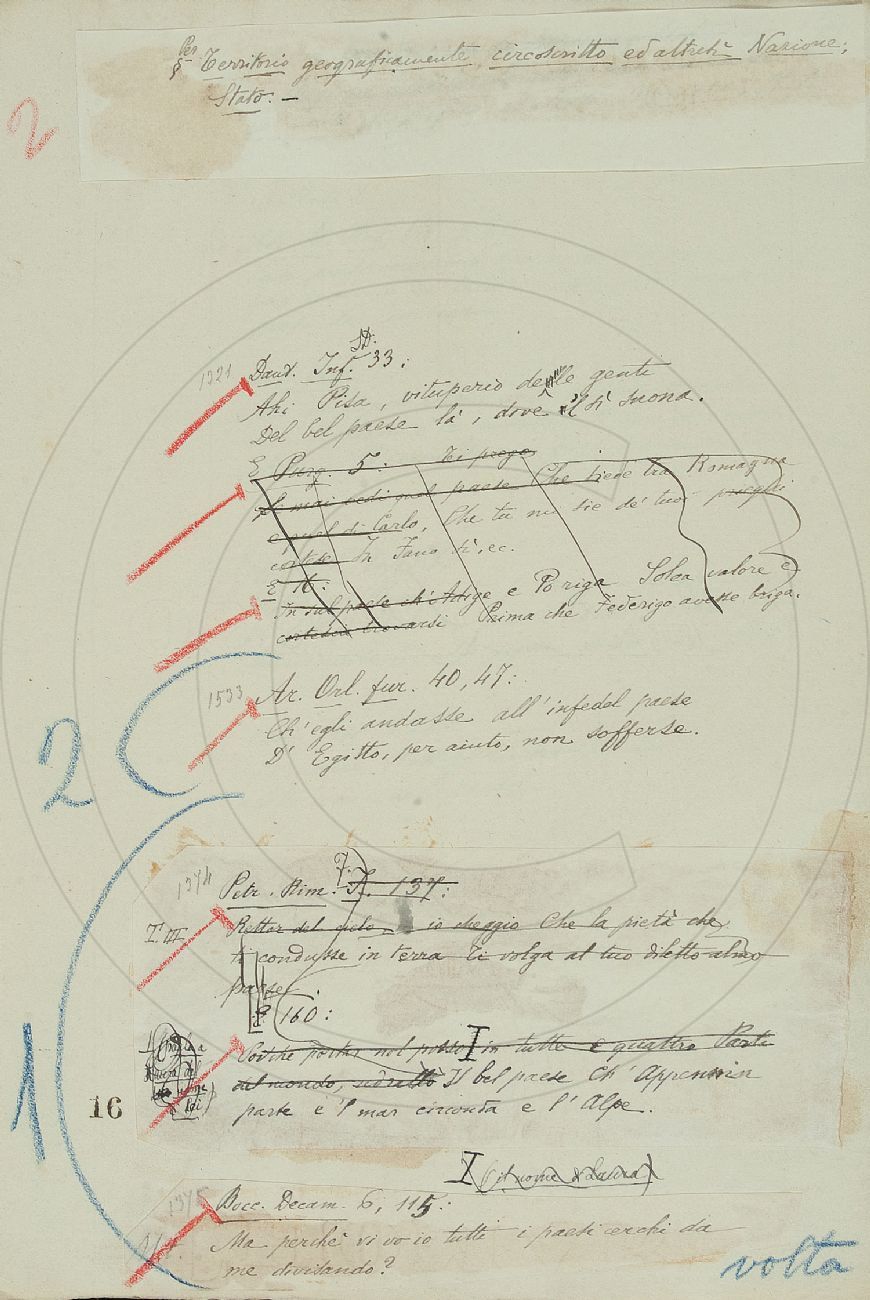 Per § Territorio geograficamente circoscritto ed altresì Nazione,
Stato. —
2
SD.
1321 Dant. Inf. 33:
Ahi Pisa, vituperio delle genti
Del bel paese là, dove il sì suona.
E Purg. 5: Ti prego
se mai vedi quel paese Che siede tra Romagna
e quel di Carlo, Che tu mi sie de' tuoi prieghi
cortese In Fano sì, ec.
E 16:
In sul paese ch'Adige e Po riga Solea valore e
cortesia trovarsi Prima che Federigo avesse briga.
1533 Ar. Orl. fur. 40, 47:
Ch'egli andasse all'infedel paese
D'Egitto, per aiuto, non sofferse.
2
1374 Petr. Rim. I. 137:
7.
Rettor del cielo, io cheggio Che la pietà che
ti condusse in terra Ti volga al tuo diletto almo
paese.
E 160:
I
Poiché portar nol posso in tutte e quattro Parti
del mondo, udrallo Il bel paese Ch'Appennin
parte e 'l mar circonda e l'Alpe.
1
16
I (il nome di Laura)
1375 Bocc. Decam. 6, 115:
Ma perchè vi vo io tutti i paesi cerchi da
me divisando?
volta